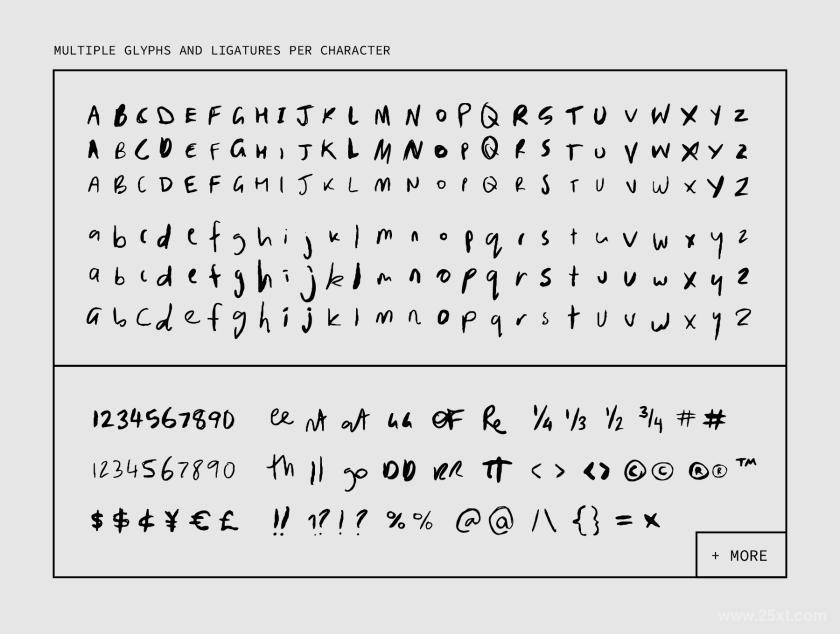 MULTIPLE GLYPHS AND LIGATURES PER CHARACTER
A B C D E F G H I J K L M N O P Q R S T U V W X Y Z
A B C D E F G H I J K L M N O P Q R S T U V W X Y Z
A B C D E F G H I J K L M N O P Q R S T U V W X Y Z
a b c d e f g h i j k l m n o p q r s t u v w x y z
a b c d e f g h i j k l m n o p q r s t u v w x y z
a b c d e f g h i j k l m n o p q r s t u v w x y z
1234567890 ee nt at OF Re 1/4 1/3 1/2 3/4 # #
1234567890 th ll go DD RR TT < > < > © © ® ® ™
$ $ ¢ ¥ € £ !! ?? ! ? % % @ @ / \ { } = ×
+ MORE
www.25xt.com